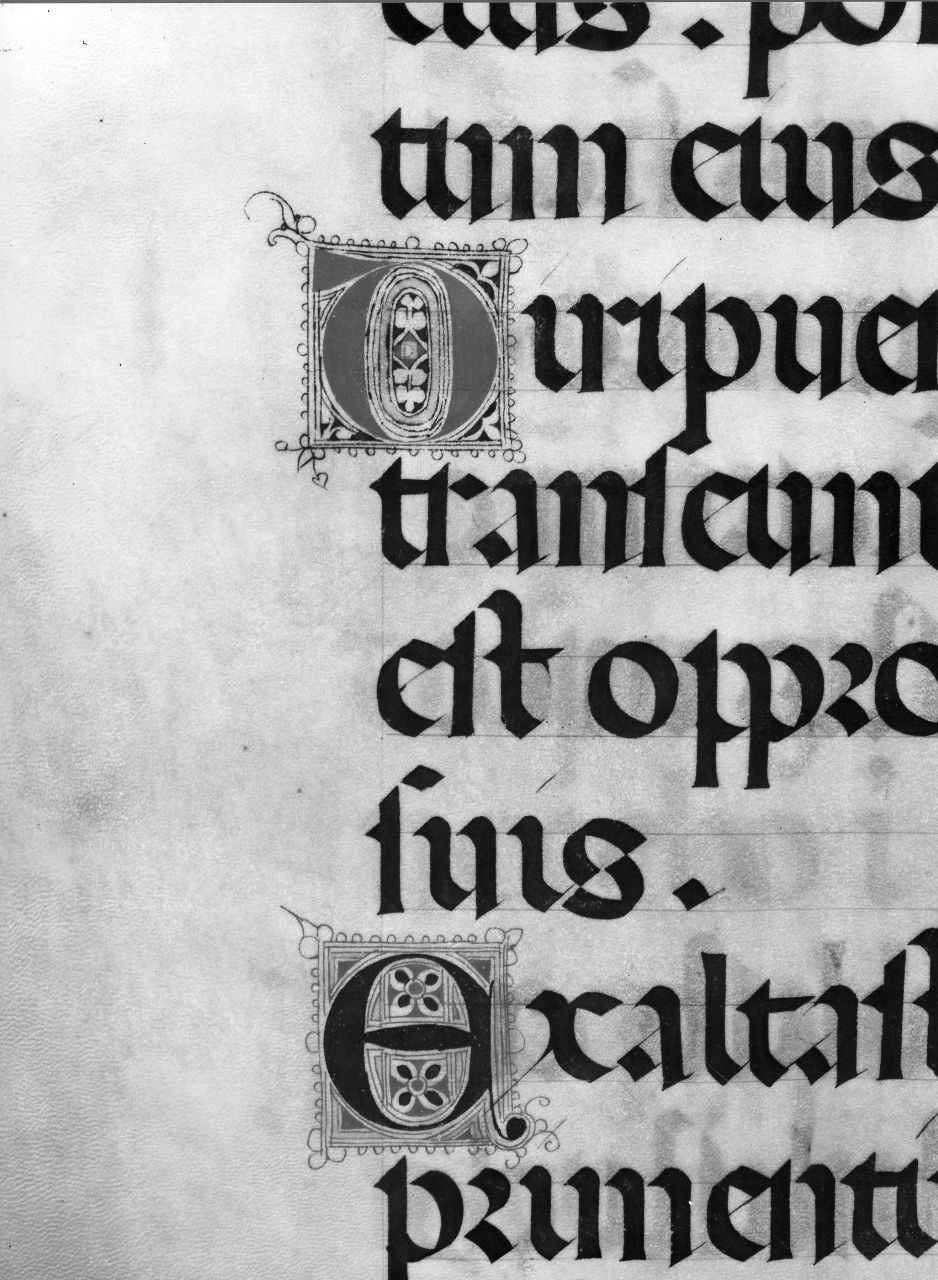 eius . po
tum eius
Diripue
tranſeunt
eſt oppro
ſuis .
Exaltaſ
primenti